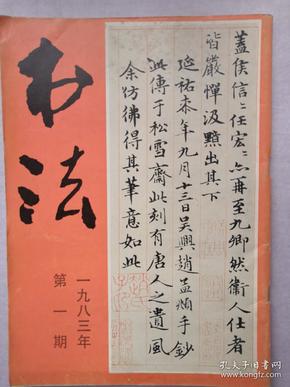 书法
一九八三年
第一期
蓋侯信〻任宏〻亦再至九卿然衛人仕者
皆嚴憚汲黯出其下
延祐柒年九月十三日吴興趙孟頫手鈔
此傳于松雪齋此刻有唐人之遺風
余彷彿得其筆意如此
孔夫子旧书网